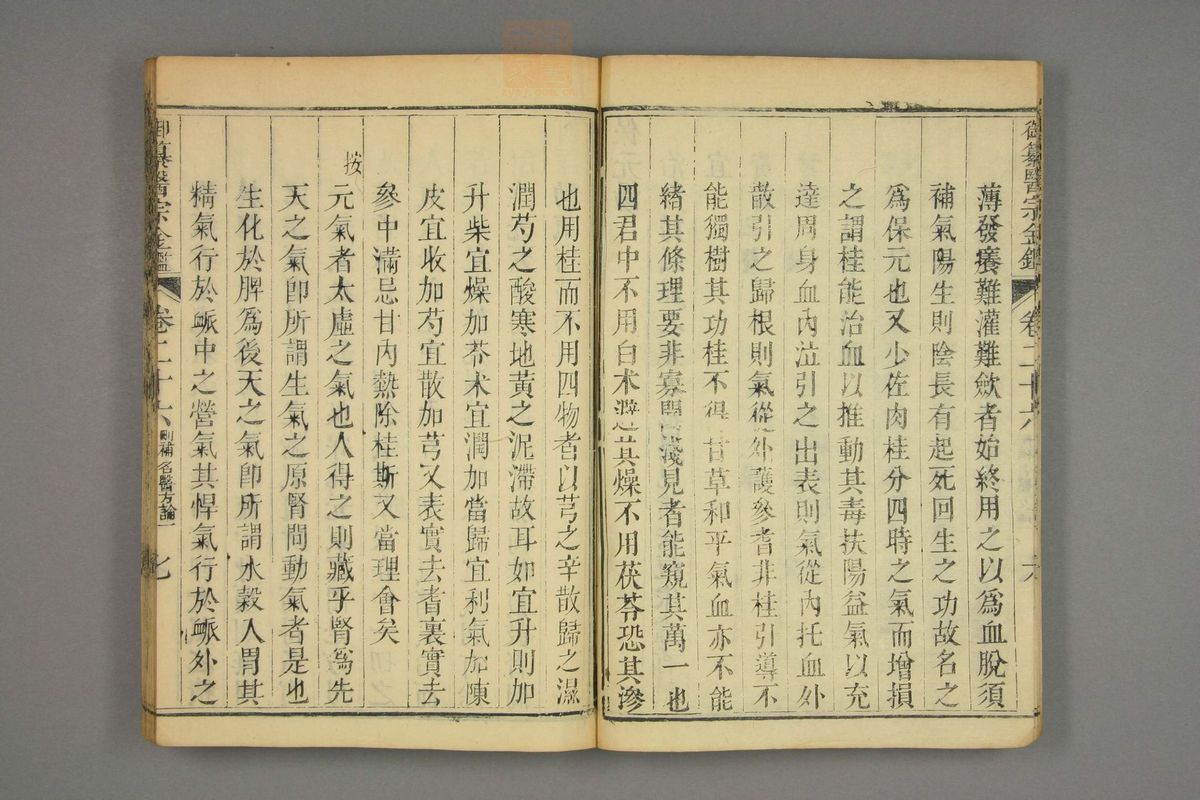 御纂醫宗金鑑 卷二十六 六
薄發癢難灌難歛者始終用之以爲血脫須
補氣陽生則陰長有起死回生之功故名之
爲保元也又少佐肉桂分四時之氣而增損
之謂桂能治血以推動其毒扶陽益氣以充
達周身血內泣引之出表則氣從內托血外
散引之歸根則氣從外護參耆非桂引導不
能獨樹其功桂不得甘草和平氣血亦不能
緒其條理要非寡聞淺見者能窺其萬一也
四君中不用白术避其燥不用茯苓恐其滲
也用桂而不用四物者以芎之辛散歸之濕
潤芍之酸寒地黃之泥滯故耳如宜升則加
升柴宜燥加苓术宜潤加當歸宜利氣加陳
皮宜收加芍宜散加芎又表實去耆裏實去
參中滿忌甘內熱除桂斯又當理會矣
按
元氣者太虛之氣也人得之則藏乎腎爲先
天之氣卽所謂生氣之原腎間動氣者是也
生化於脾爲後天之氣卽所謂水穀入胃其
精氣行於䘑中之營氣其悍氣行於䘑外之
御纂醫宗金鑑 卷二十六 刪補名醫方論一 七